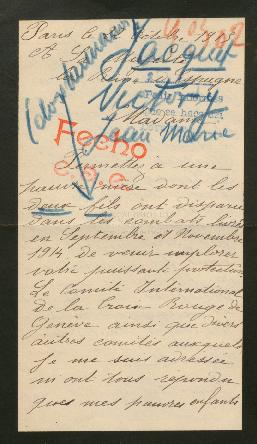 Paris le octobre 1915
A Sa Majesté
la Reine d'Espagne
Jacquy
Victor
Jean Marie
Madame
Fecho
Permettez à une
pauvre mère dont les
deux fils ont disparu
dans les combats livrés
en Septembre et Novembre
1914 de venir implorer
votre puissante protection
Le Comité International
de la Croix Rouge de
Genève ainsi que divers
autres comités auxquels
je me suis adressée
m'ont tous répondu
que mes pauvres enfants